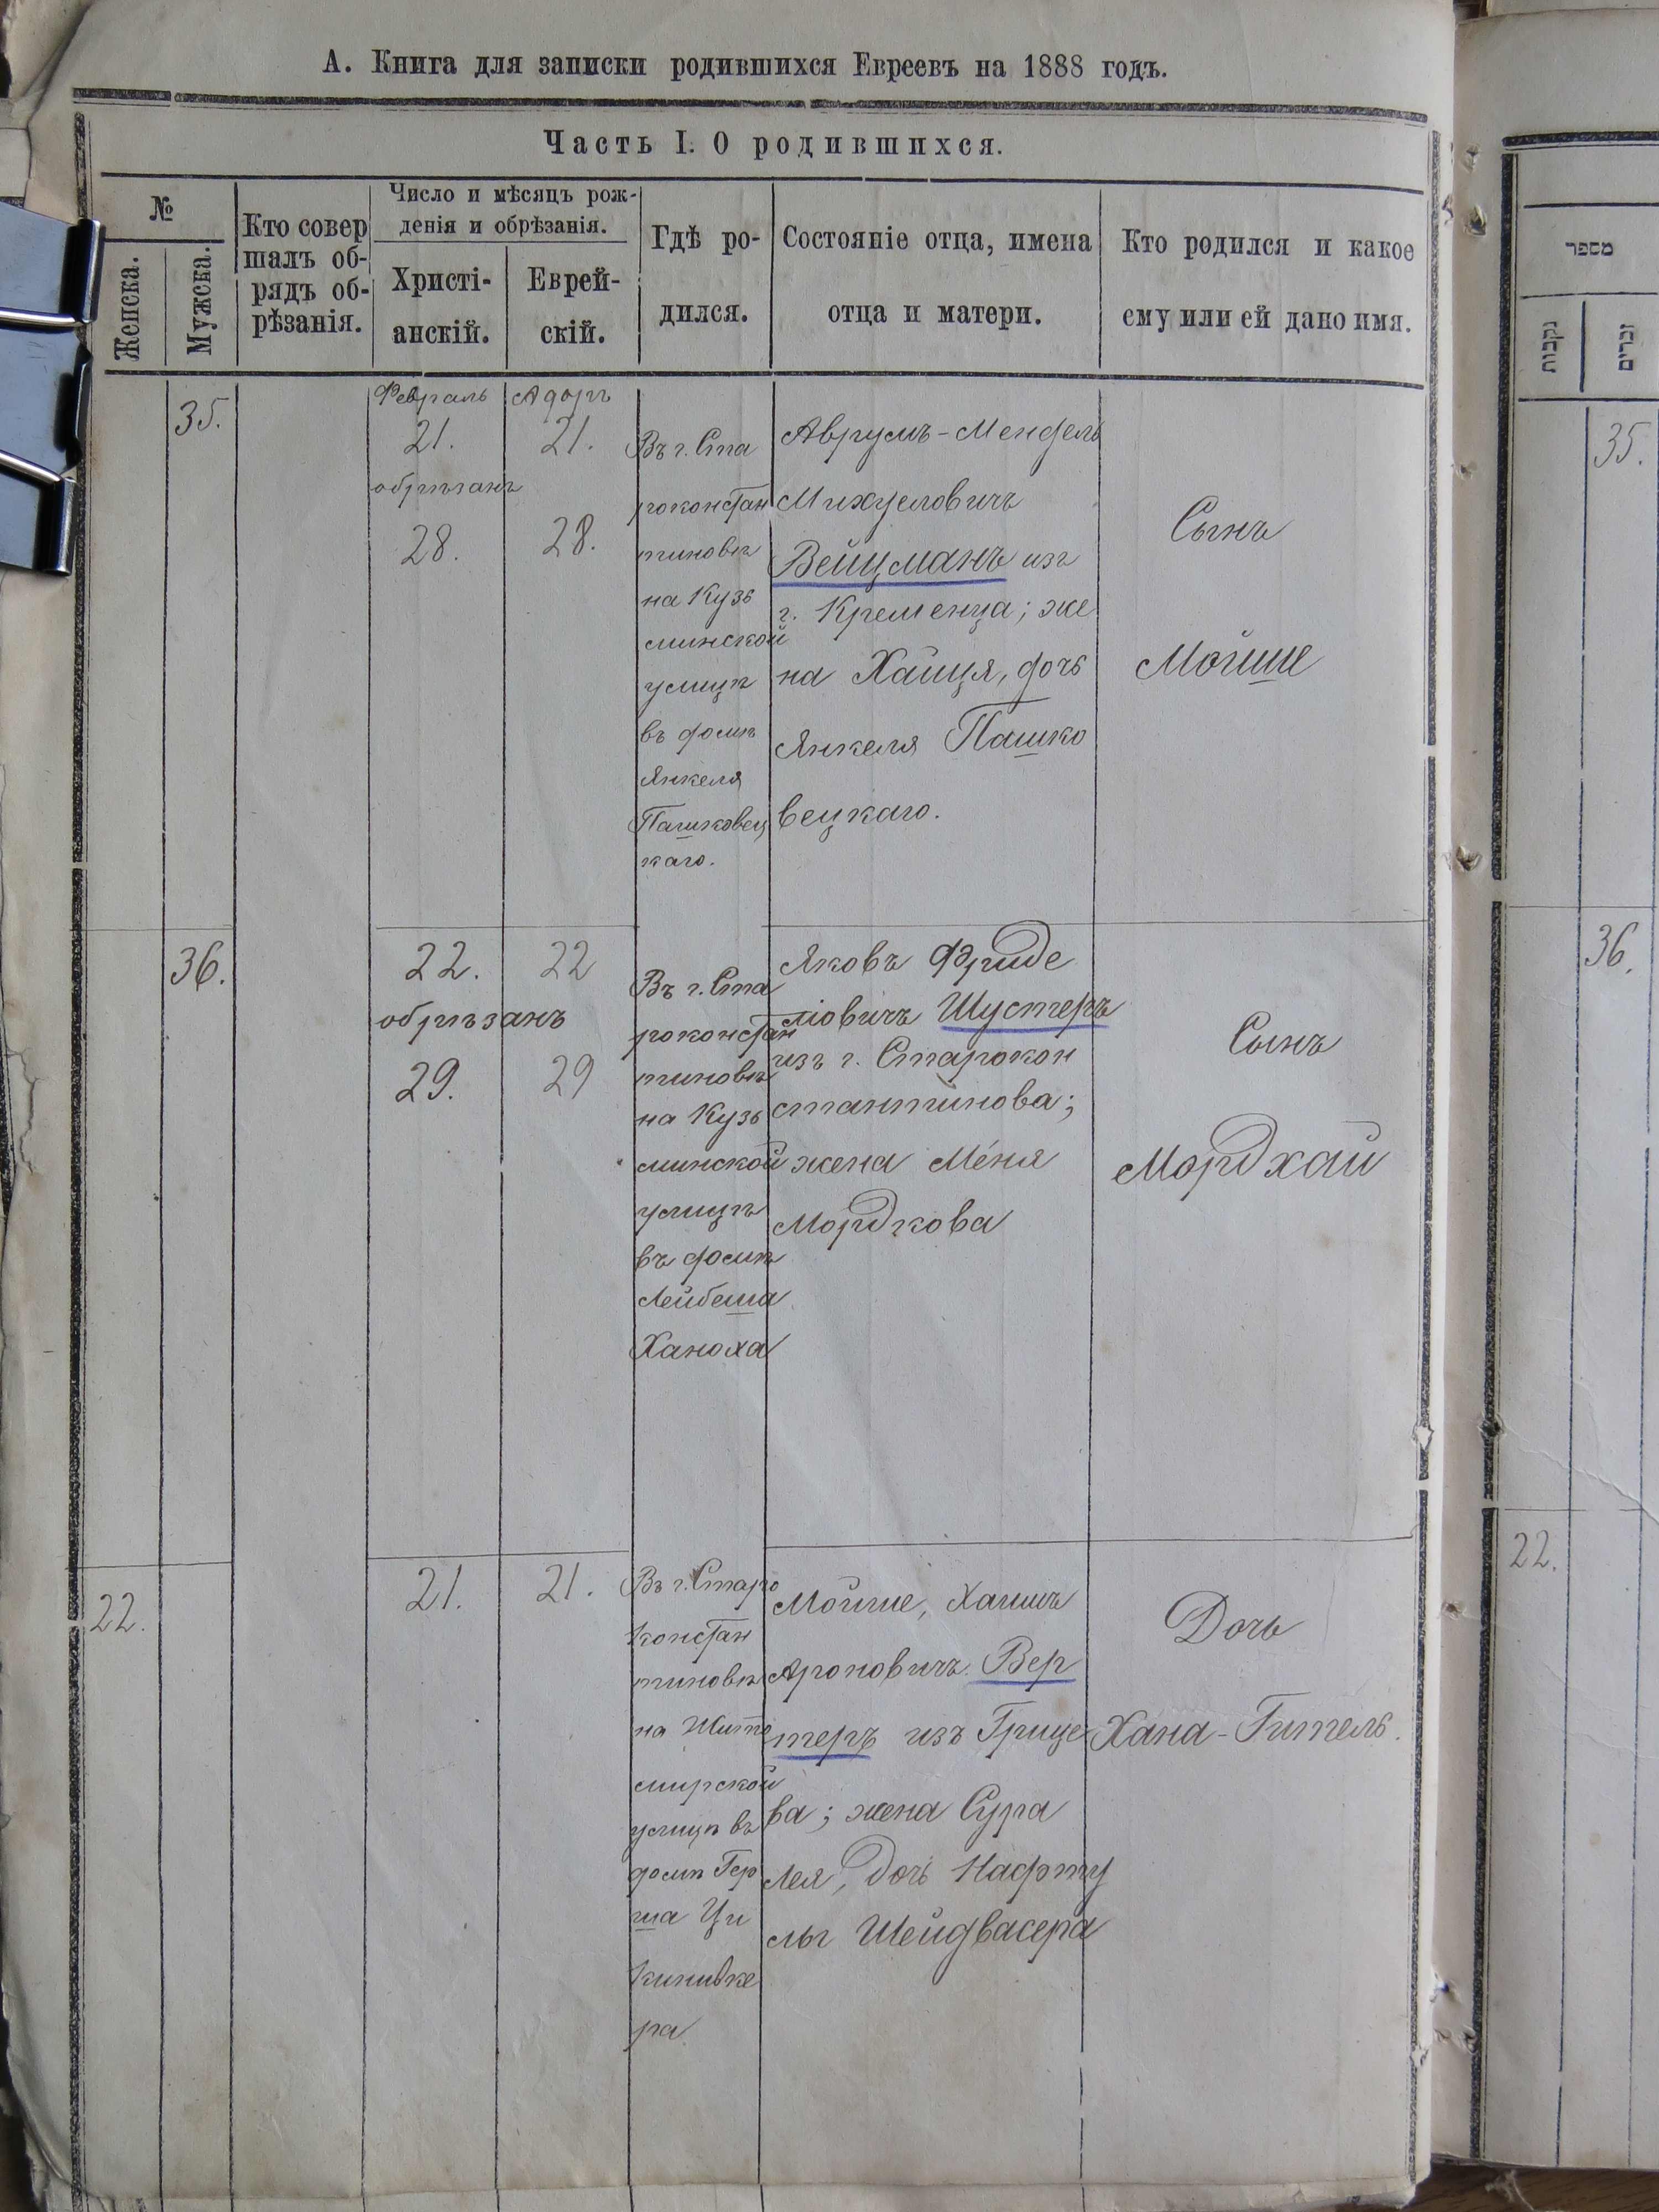 А. Книга для записки родившихся Евреевъ на 1888 годъ.
Часть I. О родившихся.
№
Женска.
Мужска.
Кто совер
шалъ об-
рядъ об-
рѣзанія.
Число и мѣсяцъ рож-
денія и обрѣзанія.
Христі-
анскій.
Еврей-
скій.
Гдѣ ро-
дился.
Состояніе отца, имена
отца и матери.
Кто родился и какое
ему или ей дано имя.
35.
Февраль
21.
обрѣзанъ
28.
Адоръ
21.
28.
Въ г. Ста
роконстан
тиновѣ
на Кузь
минской
улицѣ
въ домѣ
Янкеля
Пашковец
каго.
Аврумъ-Мендель
Михуеловичъ
Вейцманъ изъ
г. Кременца; же
на Хайця, дочь
Янкеля Пашко
вецкаго.
Сынъ
Мойше
36.
22.
обрѣзанъ
29.
22
29
Въ г. Ста
роконстан
тиновѣ
на Кузь
минской
улицѣ
въ домѣ
Лейбеша
Ханоха
Яковъ Фриде
ліовичъ Шустеръ
изъ г. Старокон
стантинова;
жена Меня
Мордкова
Сынъ
Мордхай
22.
21.
21.
Въ г. Старо
констан
тиновѣ
на Жито
мирской
улицѣ въ
домѣ Гер
ша Ци
кинивке
ра
Мойше, Хаимъ
Ароновичъ Вер
теръ изъ Грице
ва; жена Сура
Лея, дочь Нафту
лы Шейдвасера
Дочь
Хана-Гитель.
מספר
נקבות
זכרים
35.
36.
22.